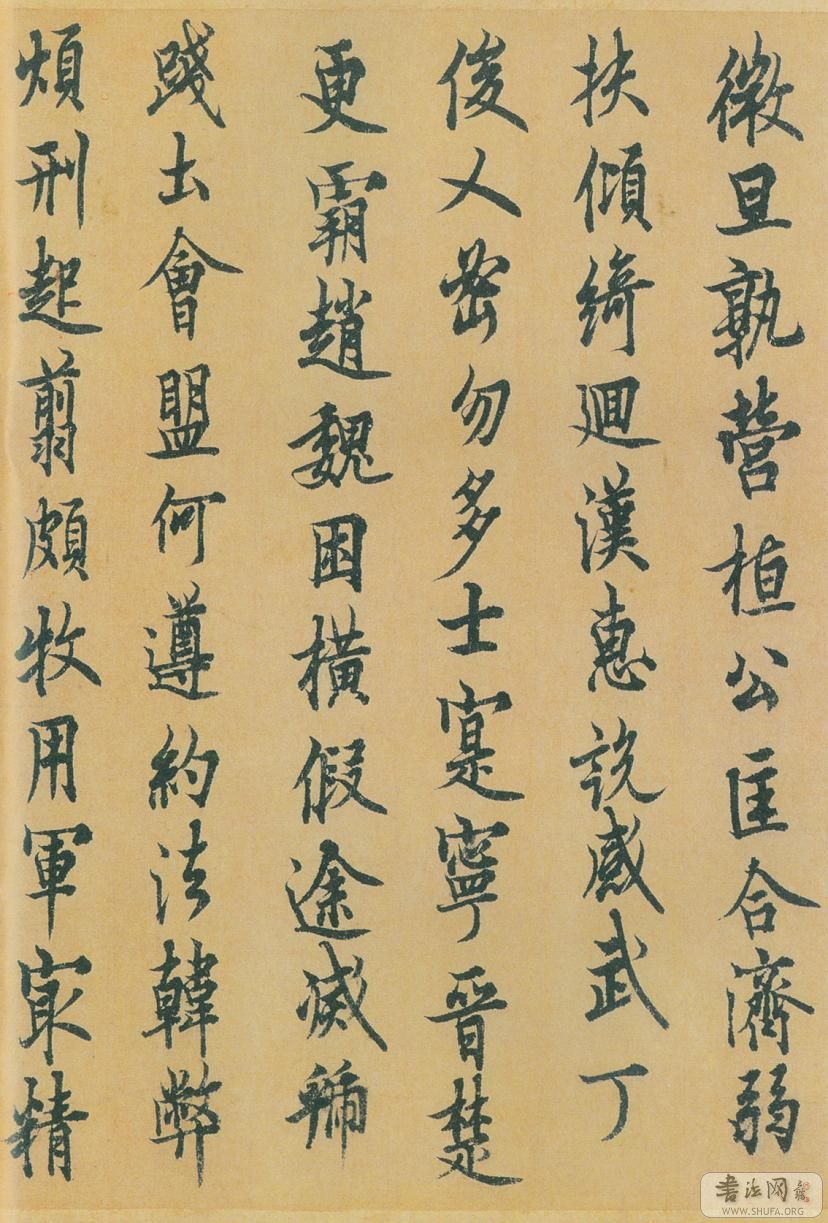 微旦孰營植公匡合濟弱
扶傾綺迴漢惠說感武丁
俊乂密勿多士寔寧晉楚
更霸趙魏困橫假途滅虢
踐土會盟何遵約法韓弊
煩刑起翦頗牧用軍冣精
書法网
WWW.SHUFA.ORG